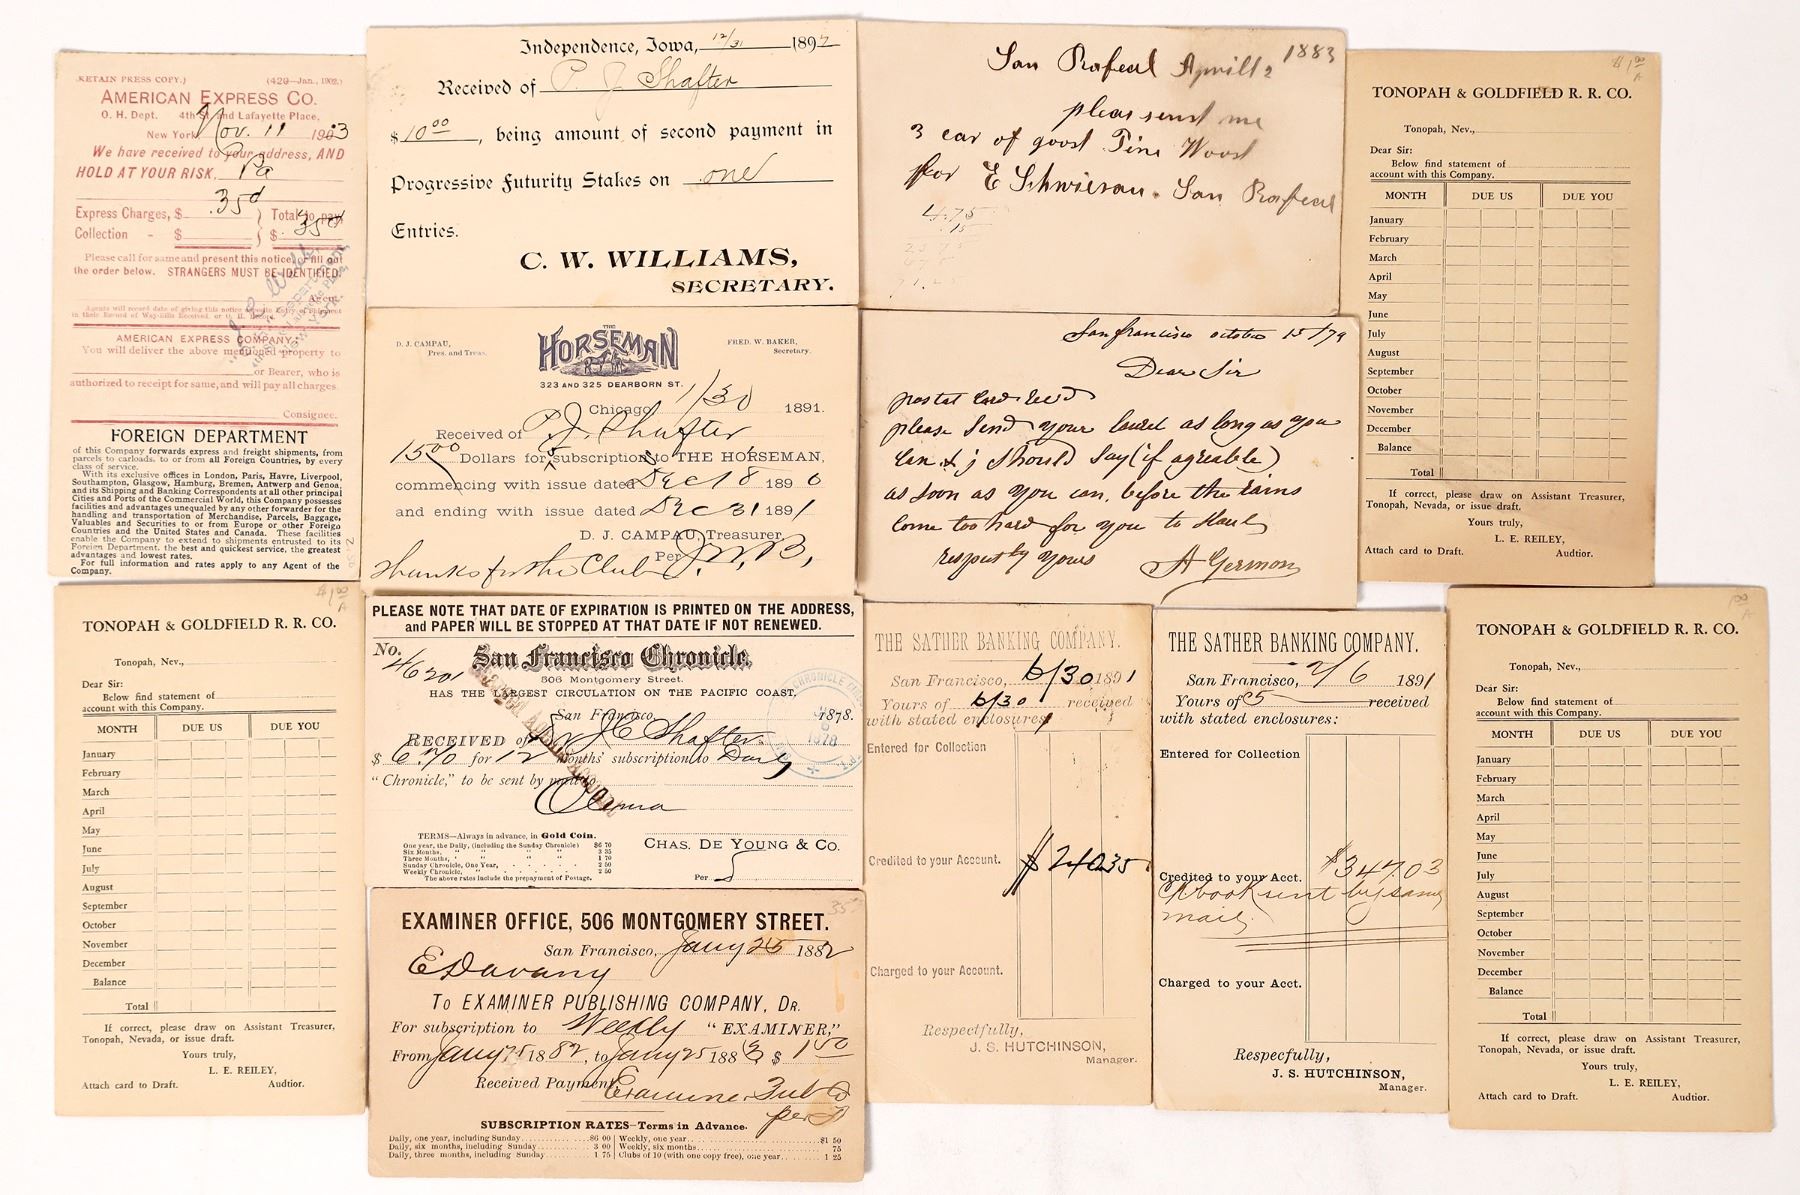 (RETAIN PRESS COPY.) (429—Jan., 1902.)
AMERICAN EXPRESS CO.
O. H. Dept. 4th St. and Lafayette Place,
New York Nov. 11 1903
We have received to your address, AND
HOLD AT YOUR RISK, Pa
Express Charges, $ .35d Total to pay,
Collection - $ $ .35d
Please call for same and present this notice, or fill out
the order below. STRANGERS MUST BE IDENTIFIED.
Agent.
Agents will record date of giving this notice
in their Record of Way-Bills Received, or O. H.
AMERICAN EXPRESS COMPANY:
You will deliver the above mentioned property to
or Bearer, who is
authorized to receipt for same, and will pay all charges.
Consignee.
FOREIGN DEPARTMENT
of this Company forwards express and freight shipments, from
parcels to carloads, to or from all Foreign Countries, by every
class of service.
With its exclusive offices in London, Paris, Havre, Liverpool,
Southampton, Glasgow, Hamburg, Bremen, Antwerp and Genoa,
and its Shipping and Banking Correspondents at all other principal
Cities and Ports of the Commercial World, this Company possesses
facilities and advantages unequaled by any other forwarder for the
handling and transportation of Merchandise, Parcels, Baggage,
Valuables and Securities to or from Europe or other Foreign
Countries and the United States and Canada. These facilities
enable the Company to extend to shipments entrusted to its
Foreign Department, the best and quickest service, the greatest
advantages and lowest rates.
For full information and rates apply to any Agent of the
Company.
Independence, Iowa, 12/31 1897
Received of P. J. Shafter
$10.00, being amount of second payment in
Progressive Futurity Stakes on one
Entries.
C. W. WILLIAMS,
SECRETARY.
San Rafeal Aprill 2 1883
pleas sent me
3 car of good Pine Wood
for E Schwiesau. San Rafeal
4.75
15
71.25
TONOPAH & GOLDFIELD R. R. CO.
Tonopah, Nev.,
Dear Sir:
Below find statement of
account with this Company.
MONTH DUE US DUE YOU
January
February
March
April
May
June
July
August
September
October
November
December
Balance
Total
If correct, please draw on Assistant Treasurer,
Tonopah, Nevada, or issue draft.
Yours truly,
L. E. REILEY,
Attach card to Draft. Audtior.
D. J. CAMPAU,
Pres. and Treas.
THE
HORSEMAN
FRED. W. BAKER,
Secretary.
323 AND 325 DEARBORN ST.
Chicago 1/30 1891.
Received of P. J. Shafter
15.00 Dollars for 5 subscriptions to THE HORSEMAN,
commencing with issue dated Dec 18 1890
and ending with issue dated Dec 31 1891
D. J. CAMPAU, Treasurer,
Per J. W. B,
Thanks for the Club
San francisco october 15/79
Dear Sir
postal card Rec'd
please Send your laurel as long as you
can & j should say (if agreable)
as soon as you can, before the rains
come too hard for you to Haul
respectly yours
A Germon
TONOPAH & GOLDFIELD R. R. CO.
Tonopah, Nev.,
Dear Sir:
Below find statement of
account with this Company.
MONTH DUE US DUE YOU
January
February
March
April
May
June
July
August
September
October
November
December
Balance
Total
If correct, please draw on Assistant Treasurer,
Tonopah, Nevada, or issue draft.
Yours truly,
L. E. REILEY,
Attach card to Draft. Audtior.
PLEASE NOTE THAT DATE OF EXPIRATION IS PRINTED ON THE ADDRESS,
and PAPER WILL BE STOPPED AT THAT DATE IF NOT RENEWED.
No. 46201
San Francisco Chronicle,
506 Montgomery Street.
HAS THE LARGEST CIRCULATION ON THE PACIFIC COAST,
San Francisco 1878.
RECEIVED of J C Shafter
$6.70 for 12 Months' subscription to Daily
"Chronicle," to be sent by mail to
Olema
TERMS—Always in advance, in Gold Coin.
One year, the Daily, (including the Sunday Chronicle) $6 70
Six Months, " " " 3 35
Three Months, " " " 1 70
Sunday Chronicle, One Year, 2 50
Weekly Chronicle, One Year, 2 50
The above rates include the prepayment of Postage.
CHAS. DE YOUNG & CO.
Per
EXAMINER OFFICE, 506 MONTGOMERY STREET.
San Francisco, Jany 25 1882
E Davany
To EXAMINER PUBLISHING COMPANY, DR.
For subscription to Weekly "EXAMINER,"
From Jany 25 1882, to Jany 25 1883 $1.50
Received Payment, Examiner Pub Co
per
SUBSCRIPTION RATES—Terms in Advance.
Daily, one year, including Sunday $6 00 Weekly, one year $1 50
Daily, six months, including Sunday 3 00 Weekly, six months 75
Daily, three months, including Sunday 1 75 Clubs of 10 (with one copy free), one year 1 25
THE SATHER BANKING COMPANY.
San Francisco, 6/30 1891
Yours of 6/30 received
with stated enclosures
Entered for Collection
Credited to your Account. $240.35
Charged to your Account.
Respectfully,
J. S. HUTCHINSON,
Manager.
THE SATHER BANKING COMPANY.
San Francisco, 2/6 1891
Yours of 5 received
with stated enclosures:
Entered for Collection
Credited to your Acct. $347.03
book sent by same
mail.
Charged to your Acct.
Respecfully,
J. S. HUTCHINSON,
Manager.
TONOPAH & GOLDFIELD R. R. CO.
Tonopah, Nev.,
Dear Sir:
Below find statement of
account with this Company.
MONTH DUE US DUE YOU
January
February
March
April
May
June
July
August
September
October
November
December
Balance
Total
If correct, please draw on Assistant Treasurer,
Tonopah, Nevada, or issue draft.
Yours truly,
L. E. REILEY,
Attach card to Draft. Audtior.